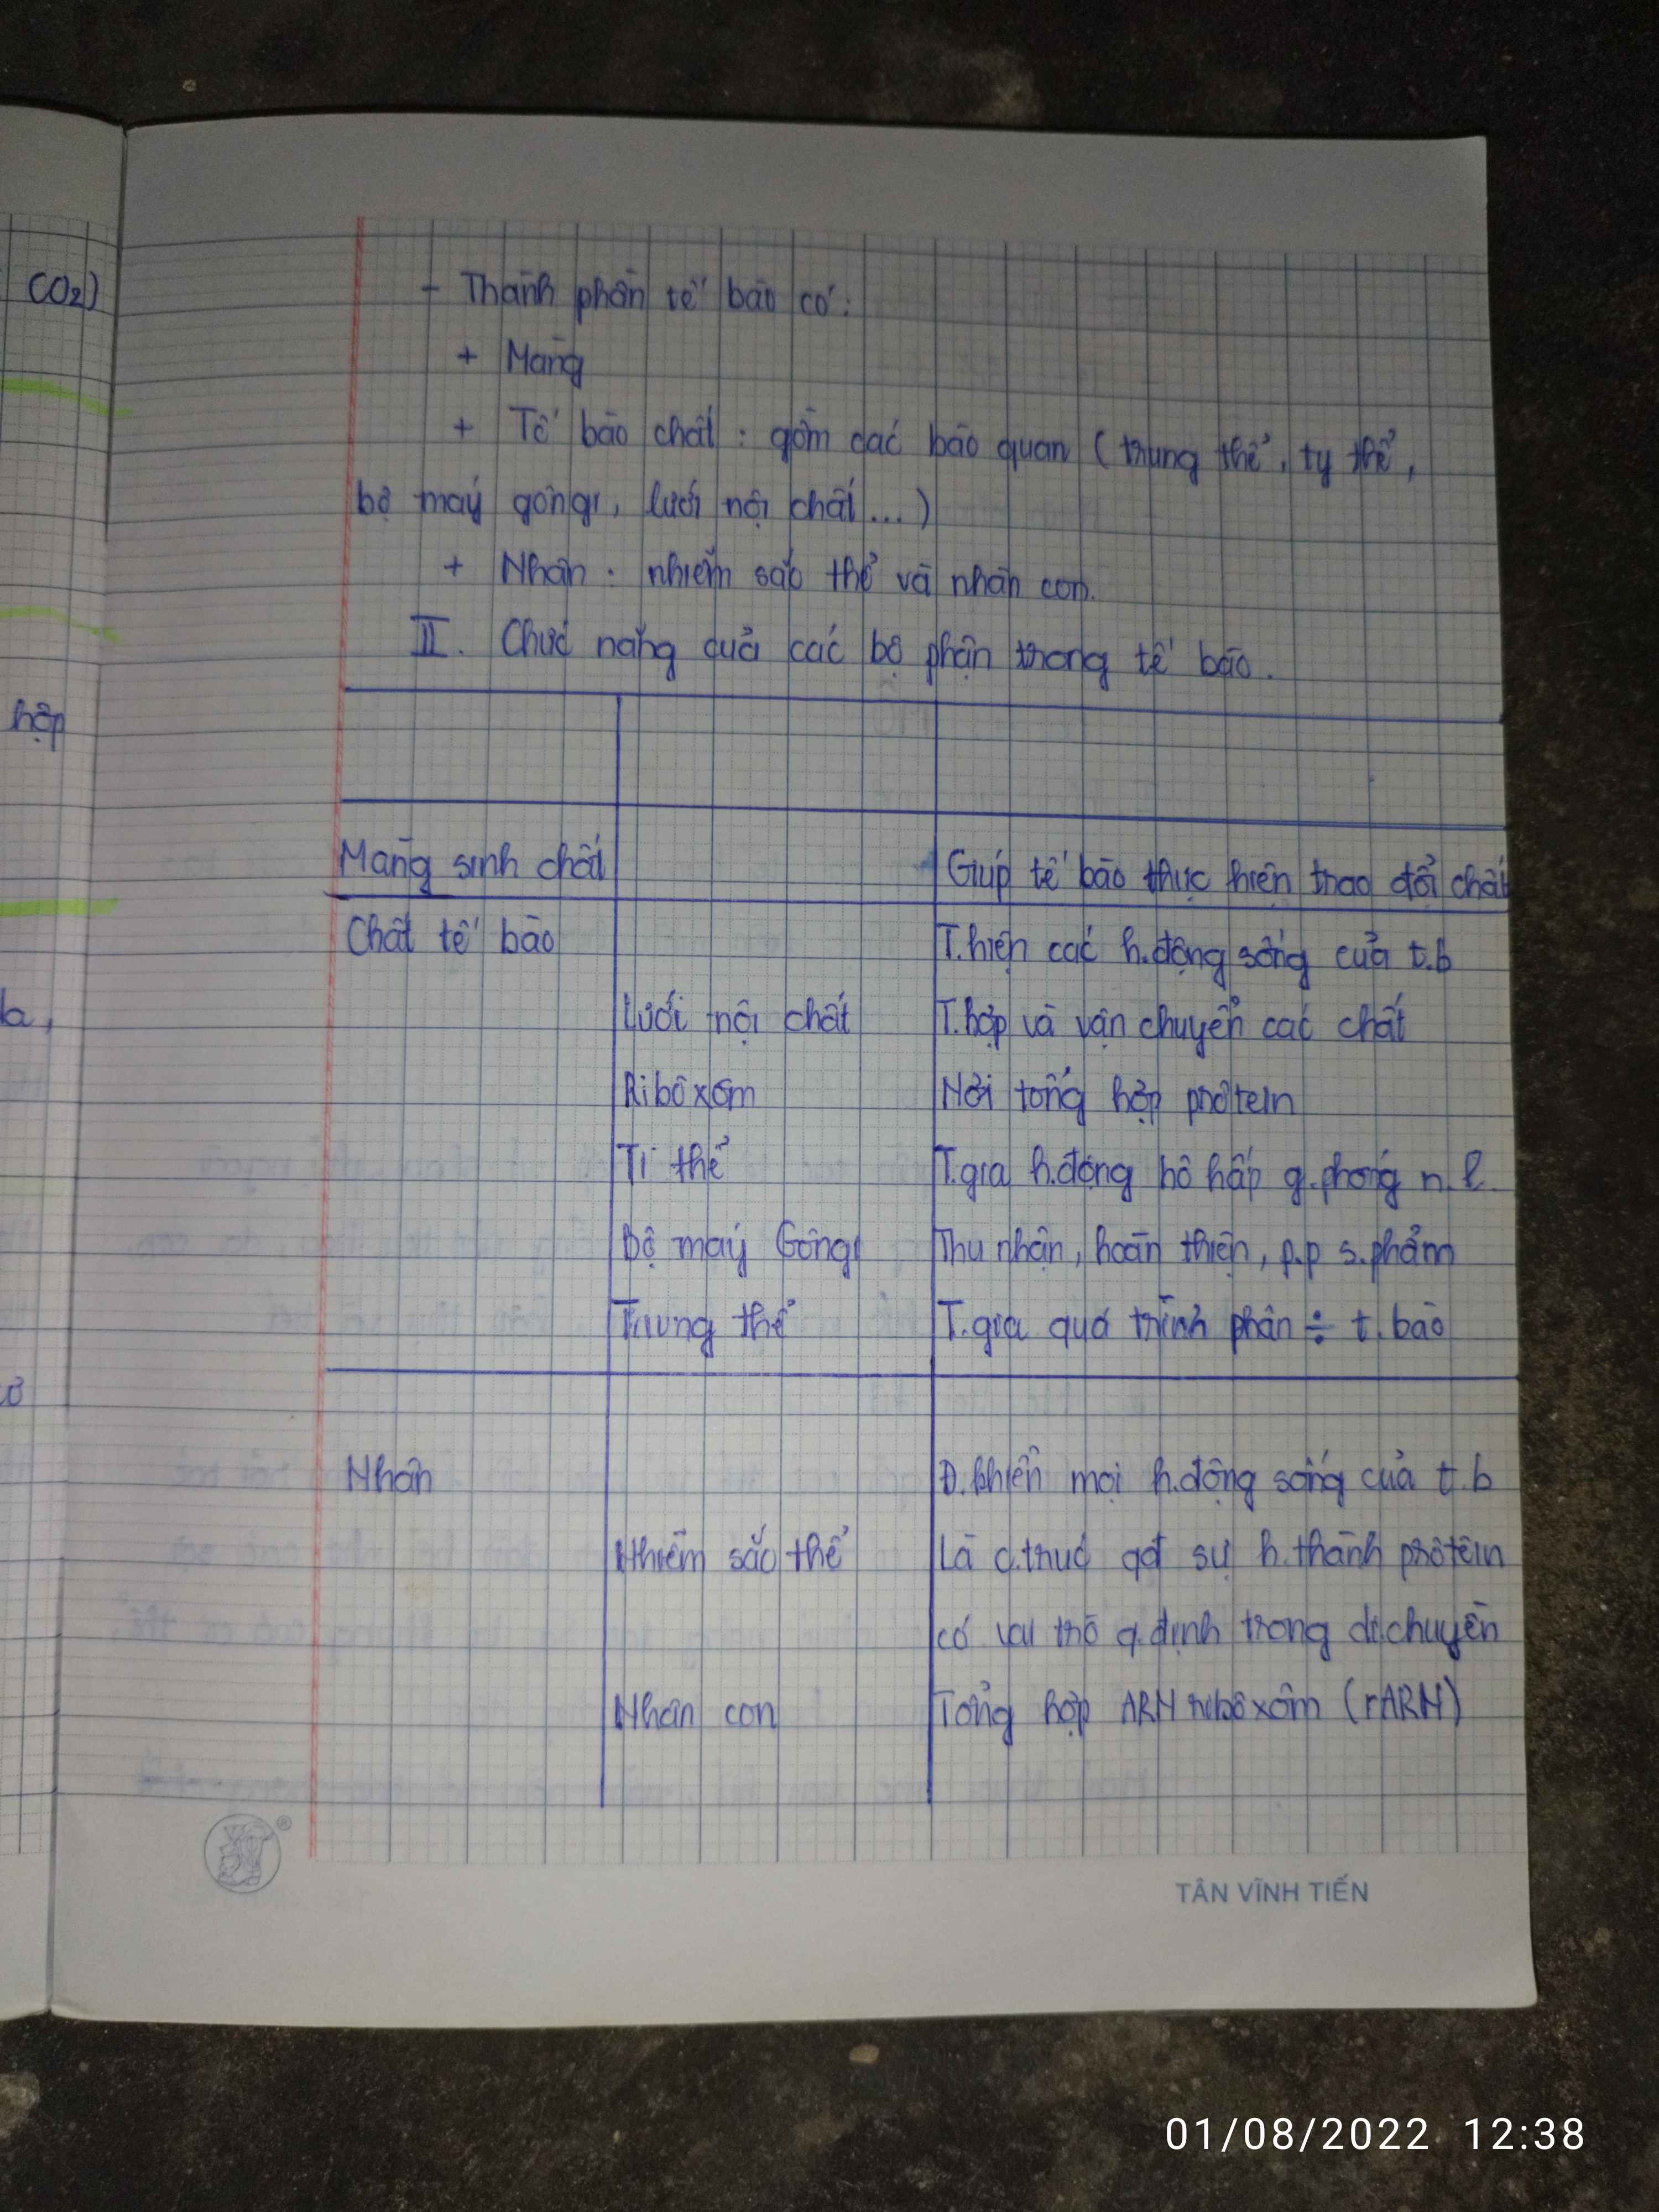 CO₂)
hợp
- Thành phần tế bào có:
+ Màng
+ Tế bào chất : gồm các bào quan ( trung thể, ty thể,
bộ máy gôngi, lưới nội chất ... )
+ Nhân : nhiễm sắc thể và nhân con.
II. Chức năng của các bộ phận trong tế bào.
Màng sinh chất Giúp tế bào thực hiện trao đổi chất
Chất tế bào T.hiện các h.động sống của t.b
Lưới nội chất T.hợp và vận chuyển các chất
Ribôxôm Nơi tổng hợp prôtein
Ti thể T.gia h.động hô hấp g.phóng n.l.
Bộ máy Gôngi Thu nhận, hoàn thiện, p.p s.phẩm
Trung thể T.gia quá trình phân ÷ t.bào
Nhân Đ.khiển mọi h.động sống của t.b
Nhiễm sắc thể Là c.trúc qđ sự h.thành prôtêin
có vai trò q.định trong di chuyền
Nhân con Tổng hợp ARN ribôxôm (rARN)
TÂN VĨNH TIẾN
01/08/2022 12:38